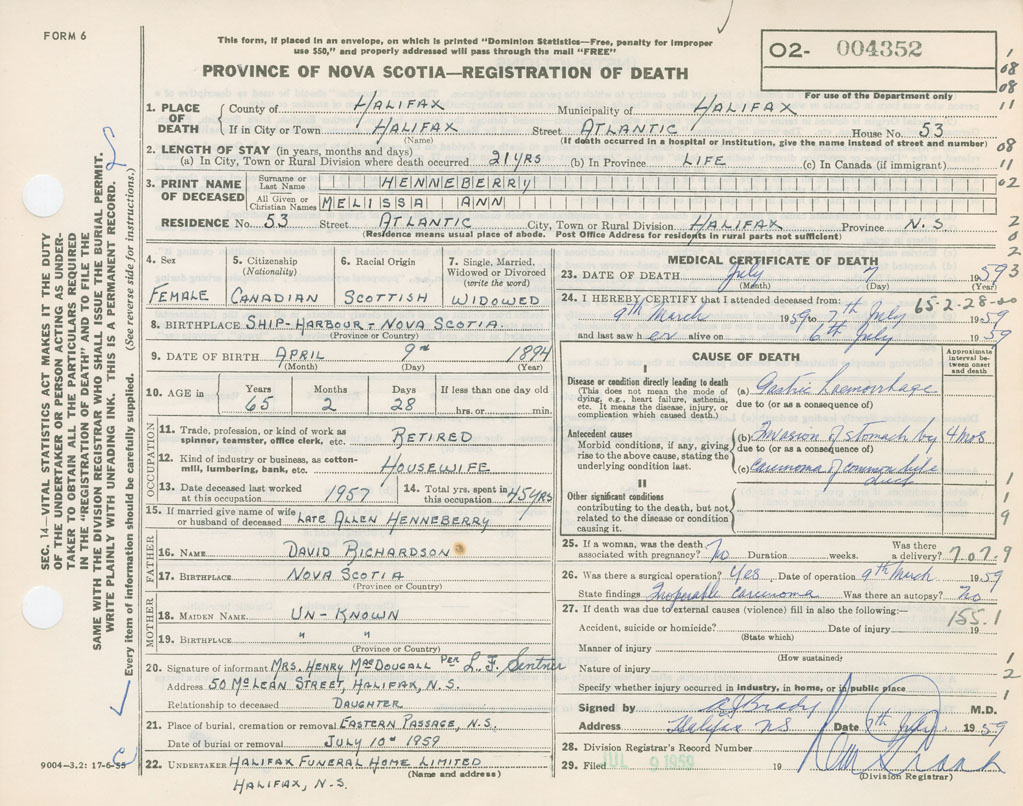 FORM 6
This form, if placed in an envelope, on which is printed "Dominion Statistics—Free, penalty for improper
use $50," and properly addressed will pass through the mail "FREE"
PROVINCE OF NOVA SCOTIA—REGISTRATION OF DEATH
02- 004352
For use of the Department only
1
08
08
11
08
11
02
2
0
2
3
SEC. 14—VITAL STATISTICS ACT MAKES IT THE DUTY
OF THE UNDERTAKER OR PERSON ACTING AS UNDER-
TAKER TO OBTAIN ALL THE PARTICULARS REQUIRED
IN THE "REGISTRATION OF DEATH" AND TO FILE THE
SAME WITH THE DIVISION REGISTRAR WHO SHALL ISSUE THE BURIAL PERMIT.
WRITE PLAINLY WITH UNFADING INK. THIS IS A PERMANENT RECORD.
Every item of information should be carefully supplied. (See reverse side for instructions.)
1. PLACE OF DEATH County of HALIFAX Municipality of HALIFAX
If in City or Town HALIFAX Street ATLANTIC House No. 53
(Name) (If death occurred in a hospital or institution, give the name instead of street and number)
2. LENGTH OF STAY (in years, months and days)
(a) In City, Town or Rural Division where death occurred 21 YRS (b) In Province LIFE (c) In Canada (if immigrant)
3. PRINT NAME OF DECEASED Surname or Last Name HENNEBERRY
All Given or Christian Names MELISSA ANN
RESIDENCE No. 53 Street ATLANTIC City, Town or Rural Division HALIFAX Province N.S.
(Residence means usual place of abode. Post Office Address for residents in rural parts not sufficient)
4. Sex FEMALE
5. Citizenship (Nationality) CANADIAN
6. Racial Origin SCOTTISH
7. Single, Married, Widowed or Divorced (write the word) WIDOWED
8. BIRTHPLACE SHIP-HARBOUR - NOVA SCOTIA.
(Province or Country)
9. DATE OF BIRTH APRIL 9TH 1894
(Month) (Day) (Year)
10. AGE in Years 65 Months 2 Days 28 If less than one day old
hrs. or min.
OCCUPATION
11. Trade, profession, or kind of work as
spinner, teamster, office clerk, etc. RETIRED
12. Kind of industry or business, as cotton-
mill, lumbering, bank, etc. HOUSEWIFE
13. Date deceased last worked at this occupation 1957
14. Total yrs. spent in this occupation 45 YRS
15. If married give name of wife or husband of deceased LATE ALLEN HENNEBERRY
FATHER
16. NAME DAVID RICHARDSON
17. BIRTHPLACE NOVA SCOTIA
(Province or Country)
MOTHER
18. MAIDEN NAME UN-KNOWN
19. BIRTHPLACE " "
(Province or Country)
20. Signature of informant MRS. HENRY MACDOUGALL PER L. F. Sentner
Address 50 MCLEAN STREET, HALIFAX, N.S.
Relationship to deceased DAUGHTER
21. Place of burial, cremation or removal EASTERN PASSAGE, N.S.
Date of burial or removal JULY 10TH 1959
22. UNDERTAKER HALIFAX FUNERAL HOME LIMITED
(Name and address)
HALIFAX, N.S.
9004-3.2: 17-6-55
MEDICAL CERTIFICATE OF DEATH
23. DATE OF DEATH July 7 1959
(Month) (Day) (Year)
24. I HEREBY CERTIFY that I attended deceased from: 65-2-28-00
9th March 1959 to 7th July 1959
and last saw her alive on 6th July 1959
CAUSE OF DEATH
Approximate interval between onset and death
I
Disease or condition directly leading to death
(This does not mean the mode of
dying, e.g., heart failure, asthenia,
etc. It means the disease, injury, or
complication which caused death.)
(a) Gastric haemorrhage
due to (or as a consequence of)
Antecedent causes
Morbid conditions, if any, giving
rise to the above cause, stating the
underlying condition last.
(b) Invasion of stomach by 4 mos
due to (or as a consequence of)
(c) carcinoma of common bile
duct
II
Other significant conditions
contributing to the death, but not
related to the disease or condition
causing it.
1
1
9
25. If a woman, was the death associated with pregnancy? No Duration weeks. Was there a delivery? 7.0.7.9
26. Was there a surgical operation? Yes Date of operation 9th March 1959
State findings Inoperable carcinoma Was there an autopsy? No
27. If death was due to external causes (violence) fill in also the following:— 155.1
Accident, suicide or homicide? Date of injury 19
(State which)
Manner of injury
(How sustained)
1
Nature of injury
2
Specify whether injury occurred in industry, in home, or in public place
1
Signed by Brady M.D.
Address Halifax NS Date July 1959
28. Division Registrar's Record Number
29. Filed JUL 9 1959 19
(Division Registrar)